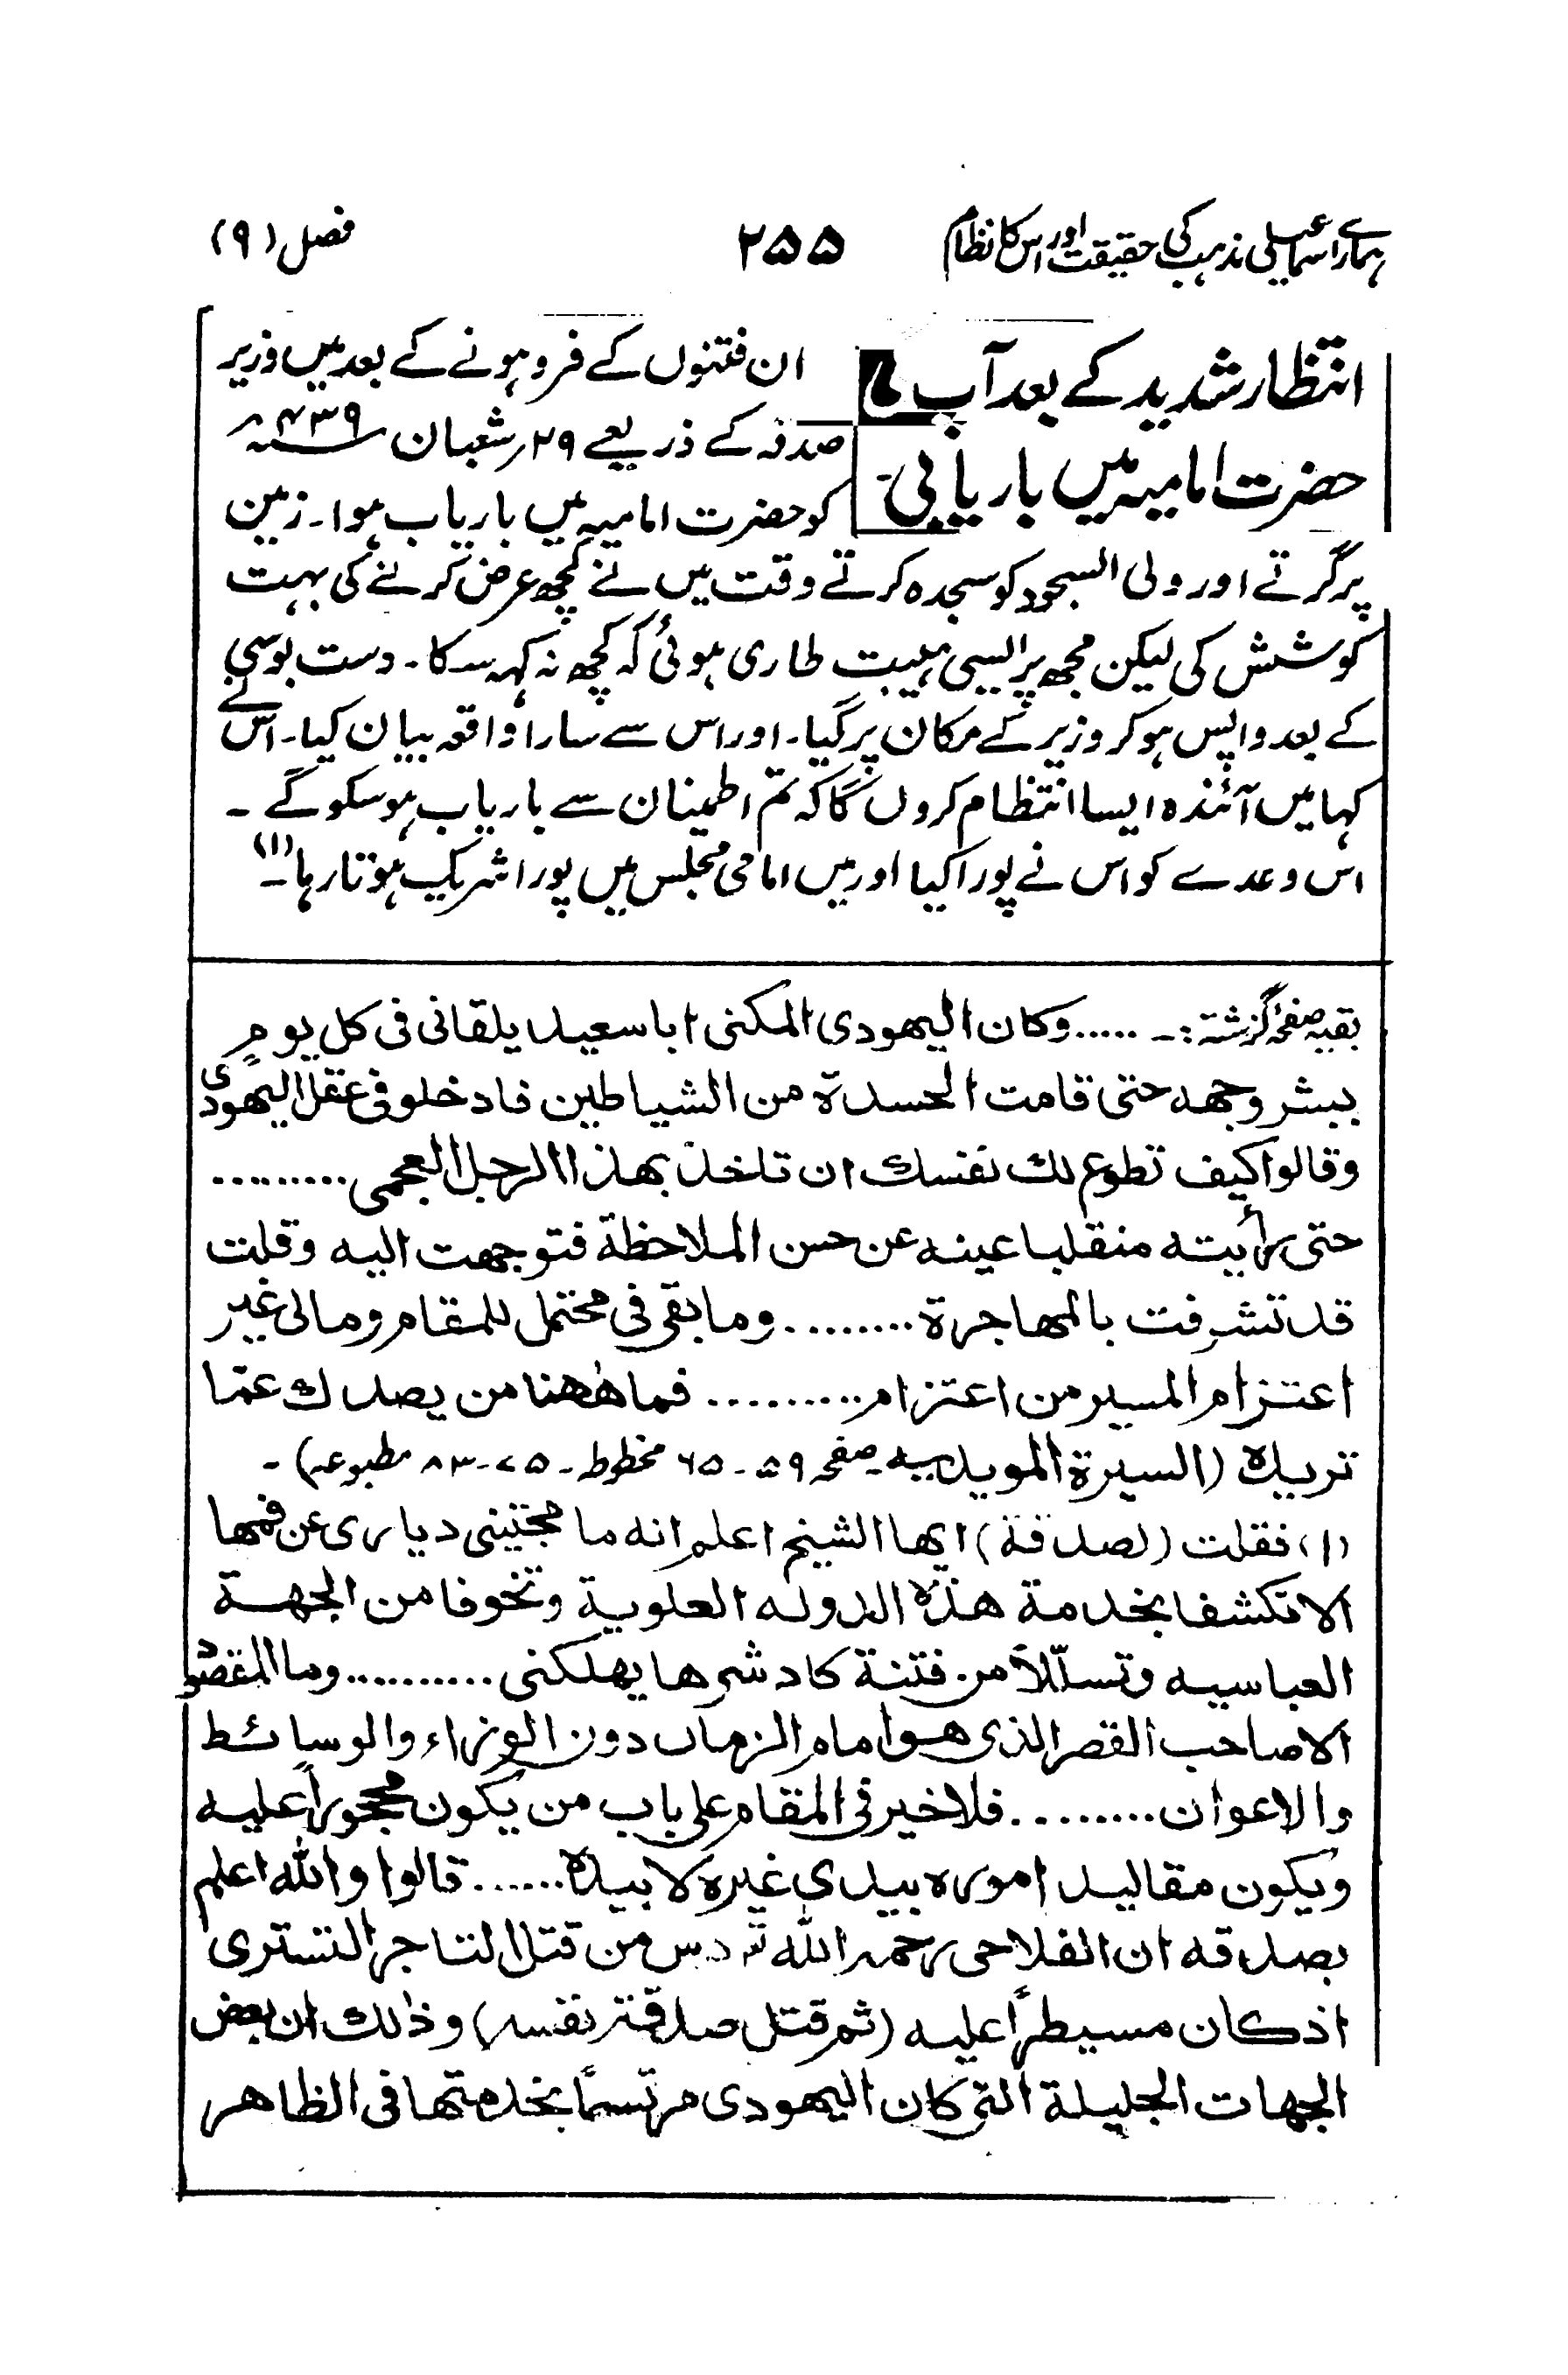 ہمارے اسماعیلی مذہب کی حقیقت اور اس کا نظام ۲۵۵ فصل (۹)
انتظار شدید کے بعد آپ کا
حضرت امامیہ میں باریابی۔
ان فتنوں کے فرو ہونے کے بعد میں وزیر
صدقہ کے ذریعے ۲۹ رشعبان ۴۳۹ھ
کو حضرت امامیہ میں باریاب ہوا۔ زمین
پر گرتے اور ولی السجود کو سجدہ کرتے وقت میں نے کچھ عرض کرنے کی بہت
کوشش کی لیکن مجھ پر ایسی ہیبت طاری ہوئی کہ کچھ نہ کہہ سکا۔ دست بوسی
کے بعد واپس ہو کر وزیر کے مکان پر گیا۔ اور اس سے سارا واقعہ بیان کیا۔ اس نے
کہا میں آئندہ ایسا انتظام کروں گا کہ تم اطمینان سے باریاب ہو سکو گے ۔
اس وعدے کو اس نے پورا کیا اور میں امامی مجلس میں پورا شریک ہوتا رہا۔(۱)
بقیہ صفحۂ گزشتہ :۔ ..... وکان الیھودی المکنی اباسعید یلقانی فی کل یومٍ
ببشر وجھہ حتی قامت الحسدۃ من الشیاطین فادخلو فی عقل الیھودی
وقالوا کیف تطوع لک نفسک ان تاخذ بھذا الرجل العجمی .........
حتی رأیتہ منقلبا عینہ عن حسن الملاحظۃ فتوجھت الیہ وقلت
قد تشرفت بالمھاجرۃ ......... وما بقی فی محتمل للمقام ومالی غیر
اعتزام المسیر من اعتزام .......... فما ھٰھنا من یصدک عمّا
تریدہ (السیرۃ المویدییہ۔ صفحہ ۵۹۔ ۶۵ مخطوط۔ ۷۵۔ ۸۳ مطبوعہ) ۔
(۱) فقلت (لصدقۃ) ایھا الشیخ اعلم انہ ما مجتینی دیاری عن فمھا
الا تکشفا بخدمۃ ھذہ الدولہ العلویۃ وتخوفا من الجھۃ
العباسیہ وتسلّلاً من فتنۃ کاد شرھا یھلکنی .......... وما المقصود
الا صاحب القصر الذی ھو امام الزمان دون الوزراء والوسائط
والاعوان ......... فلا خیر فی المقام علی باب من یکون محجوراً علیہ
ویکون مقالید امورہ بیدی غیرہ لا بیدہ ...... قالوا واللہ اعلم
بصدقہ ان الفلاحی رحمہ اللہ دس من قتل التاجر التستری
اذ کان مسیطراً علیہ (ثم قتل صدقتہ نفسہ) وذالک ان بعض
الجھات الجلیلۃ التی کان الیھودی مرتسماً بخدمتھا فی الظاھر